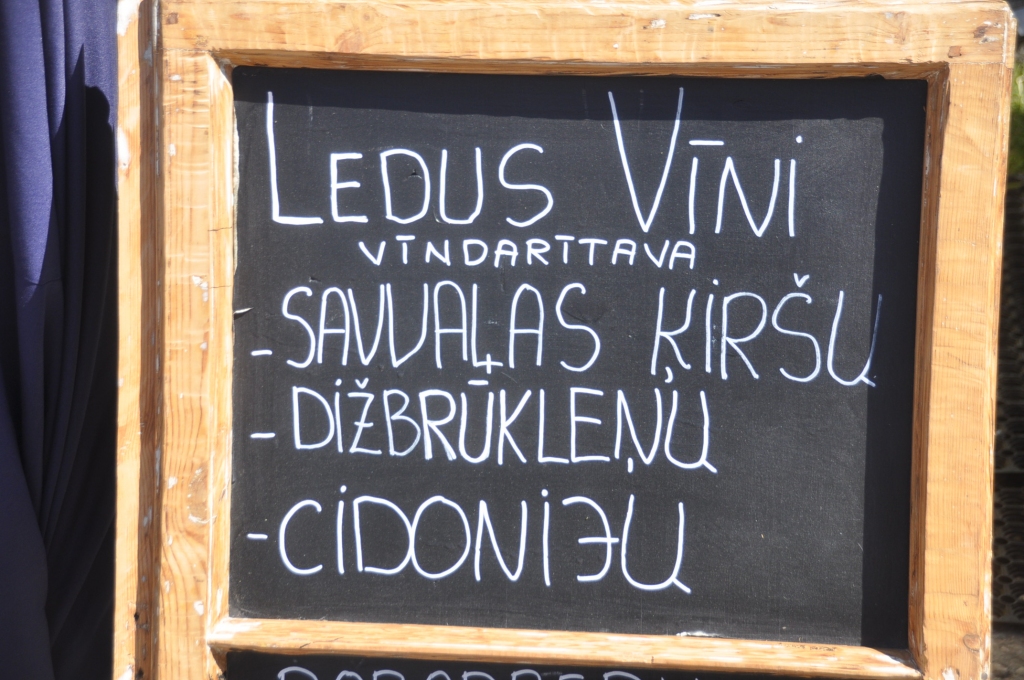 LEDUS VĪNI
VĪNDARĪTAVA
- SAVVAĻAS ĶIRŠU
- DIŽBRŪKLEŅU
- CIDONIJU